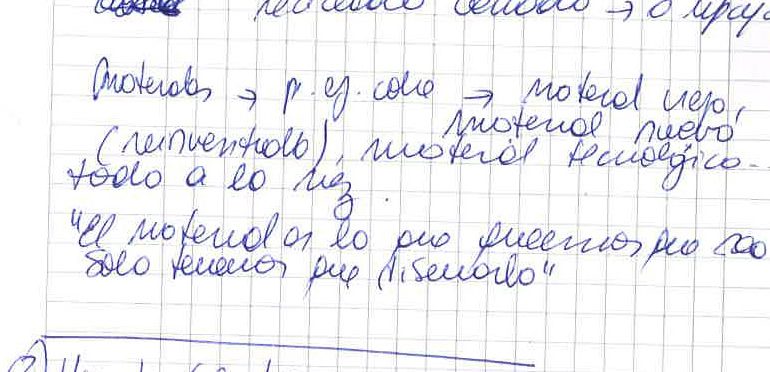 → o upcy
Materiales → p. ej. cobre → material viejo,
material nuevo
(reinventado), material tecnológico.
todo a la vez
"el material es lo que queremos que sea
solo tenemos que diseñarlo"
2)